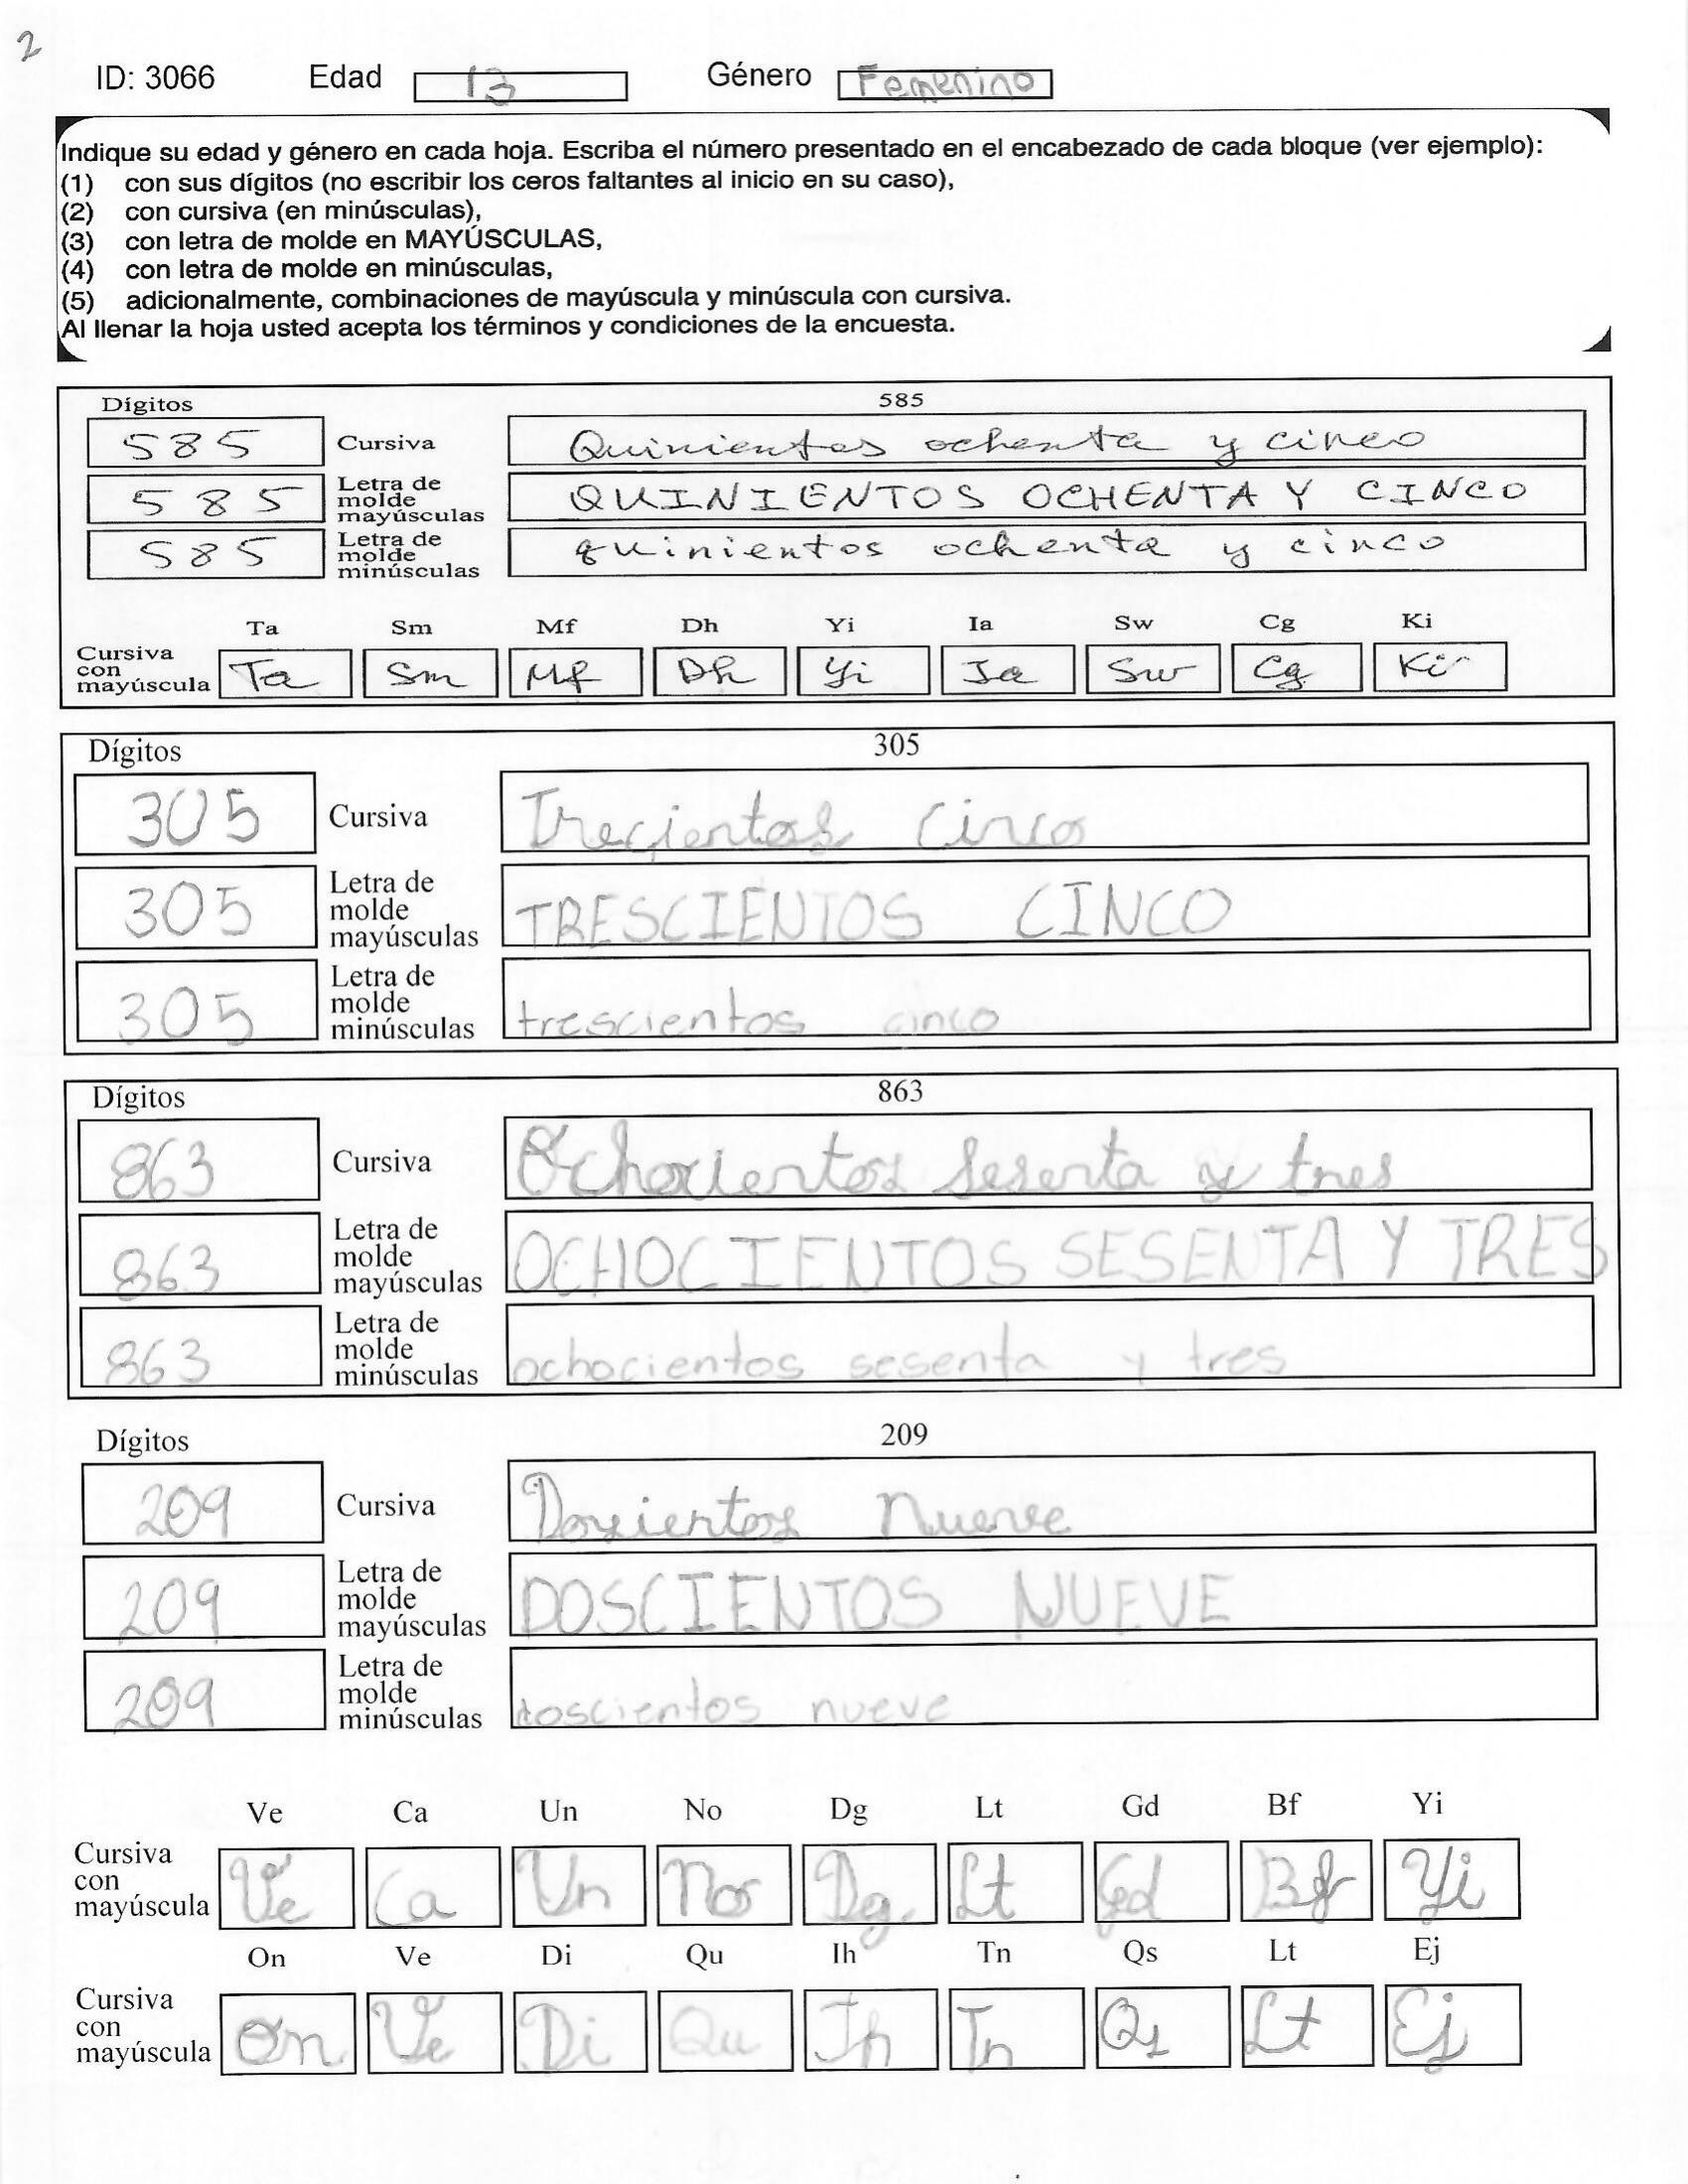 2
ID: 3066 Edad 13 Género Femenino
Indique su edad y género en cada hoja. Escriba el número presentado en el encabezado de cada bloque (ver ejemplo):
(1) con sus dígitos (no escribir los ceros faltantes al inicio en su caso),
(2) con cursiva (en minúsculas),
(3) con letra de molde en MAYÚSCULAS,
(4) con letra de molde en minúsculas,
(5) adicionalmente, combinaciones de mayúscula y minúscula con cursiva.
Al llenar la hoja usted acepta los términos y condiciones de la encuesta.
Dígitos 585
585 Cursiva Quinientos ochenta y cinco
585 Letra de molde mayúsculas QUINIENTOS OCHENTA Y CINCO
585 Letra de molde minúsculas quinientos ochenta y cinco
Ta Sm Mf Dh Yi Ia Sw Cg Ki
Cursiva con mayúscula Ta Sm Mf Dh Yi Ia Sw Cg Ki
Dígitos 305
305 Cursiva Trecientos Cinco
305 Letra de molde mayúsculas TRESCIENTOS CINCO
305 Letra de molde minúsculas trescientos cinco
Dígitos 863
863 Cursiva Ochocientos Sesenta y tres
863 Letra de molde mayúsculas OCHOCIENTOS SESENTA Y TRES
863 Letra de molde minúsculas ochocientos sesenta y tres
Dígitos 209
209 Cursiva Doscientos Nueve
209 Letra de molde mayúsculas DOSCIENTOS NUEVE
209 Letra de molde minúsculas doscientos nueve
Ve Ca Un No Dg Lt Gd Bf Yi
Cursiva con mayúscula Ve Ca Un No Dg Lt Gd Bf Yi
On Ve Di Qu Ih Tn Qs Lt Ej
Cursiva con mayúscula On Ve Di Qu Ih Tn Qs Lt Ej